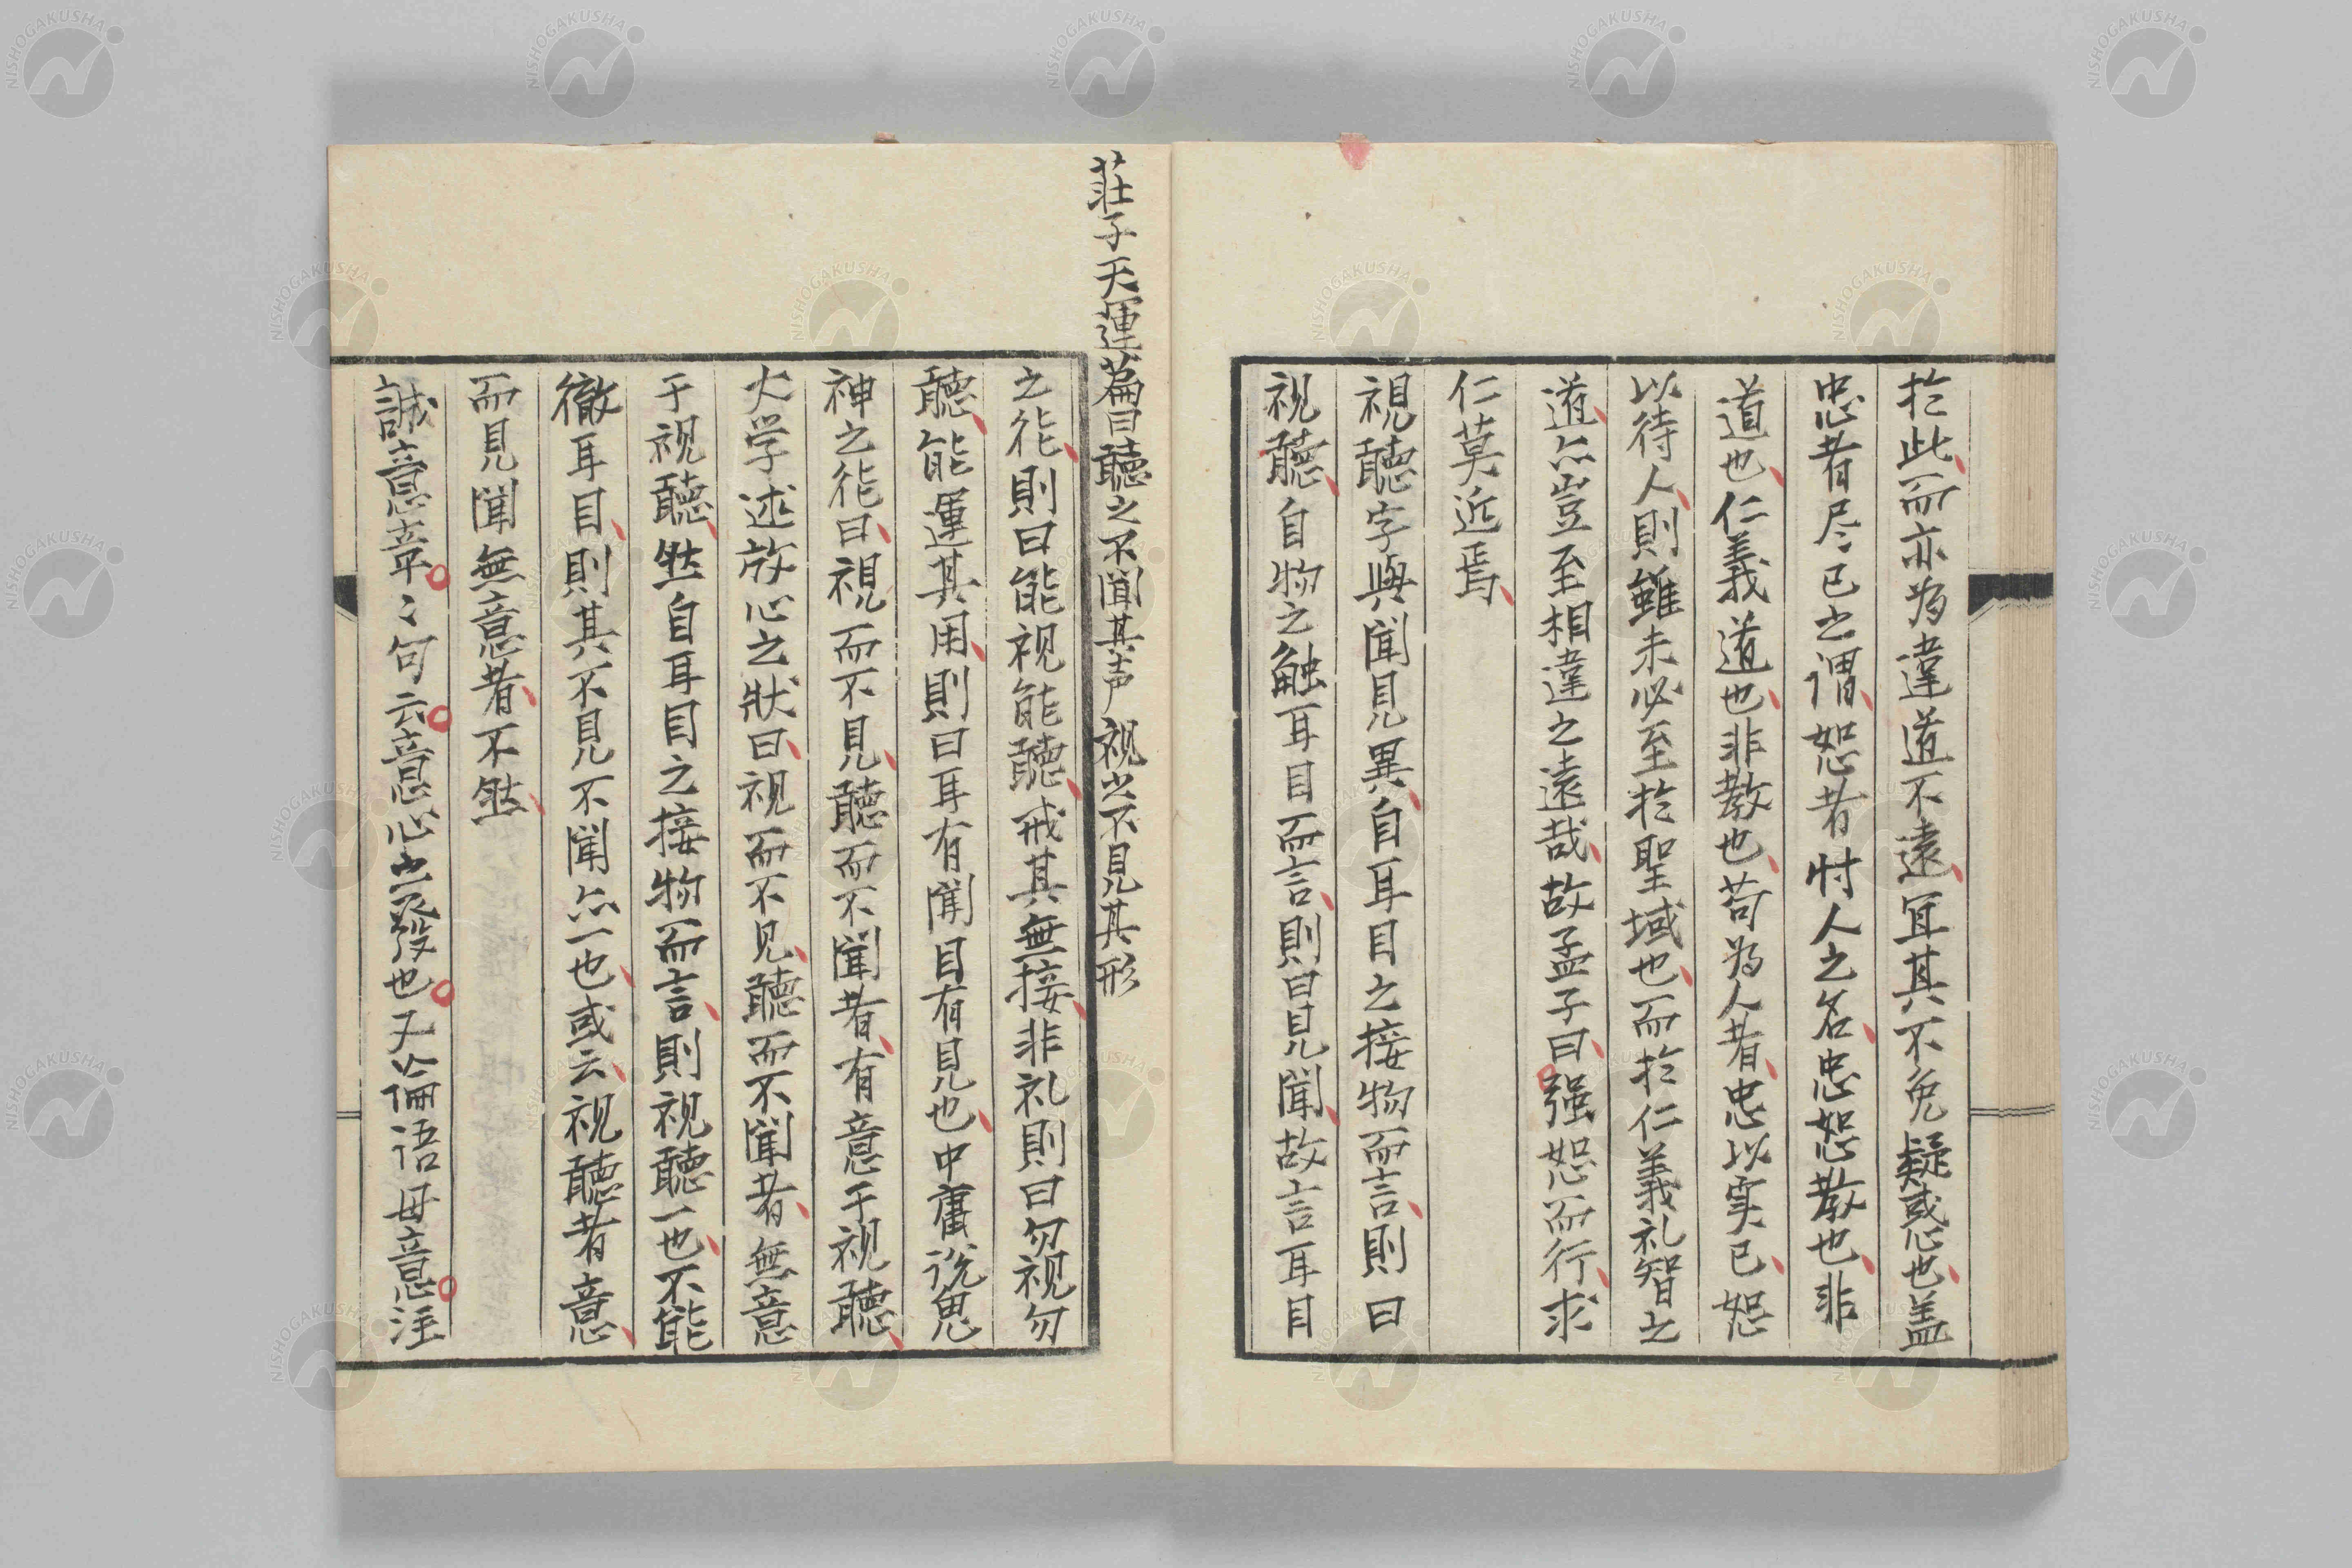 於此而亦為違道不遠宜其不免疑惑也盖
忠者尽己之謂恕者忖人之名忠恕教也非
道也仁義道也非教也苟為人者忠以実己恕
以待人則雖未必至於聖域也而於仁義礼智之
道亦豈至相違之遠哉故孟子曰强恕而行求
仁莫近焉
視聽字與聞見異自耳目之接物而言則曰
視聽自物之触耳目而言則曰見聞故言耳目
荘子天運篇曰聽之不聞其声視之不見其形
之能則曰能視能聽戒其無接非礼則曰勿視勿
聽能運其用則曰耳有聞目有見也中庸説鬼
神之能曰視而不見聽而不聞者有意于視聽
大学述放心之状曰視而不见聽而不聞者無意
于視聽然自耳目之接物而言則視聽一也不能
徹耳目則其不見不聞亦一也或云視聽者意
而見聞無意者不然
誠意章〻句云意心之發也又論语毋意注
NISHOGAKUSHA